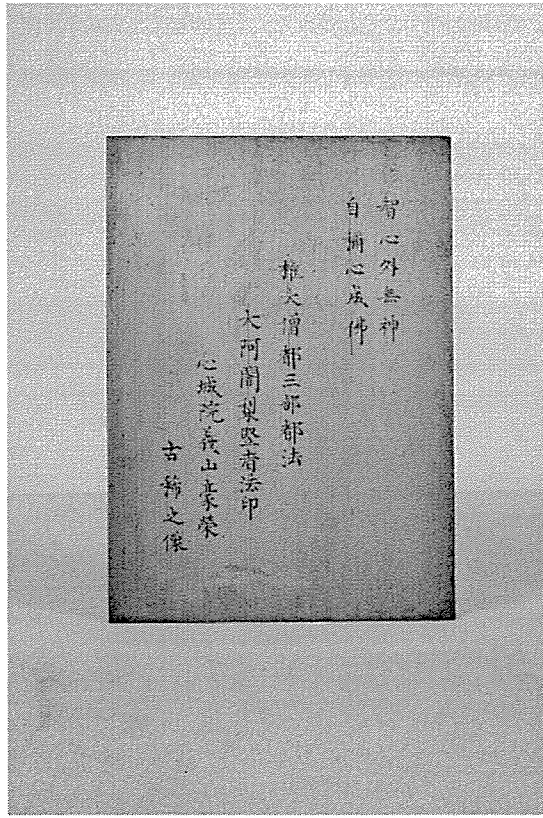 智心外無神
自捅心成佛
権大僧都三部都法
大阿闍梨竪者法印
心城院義山豪榮
古稀之像